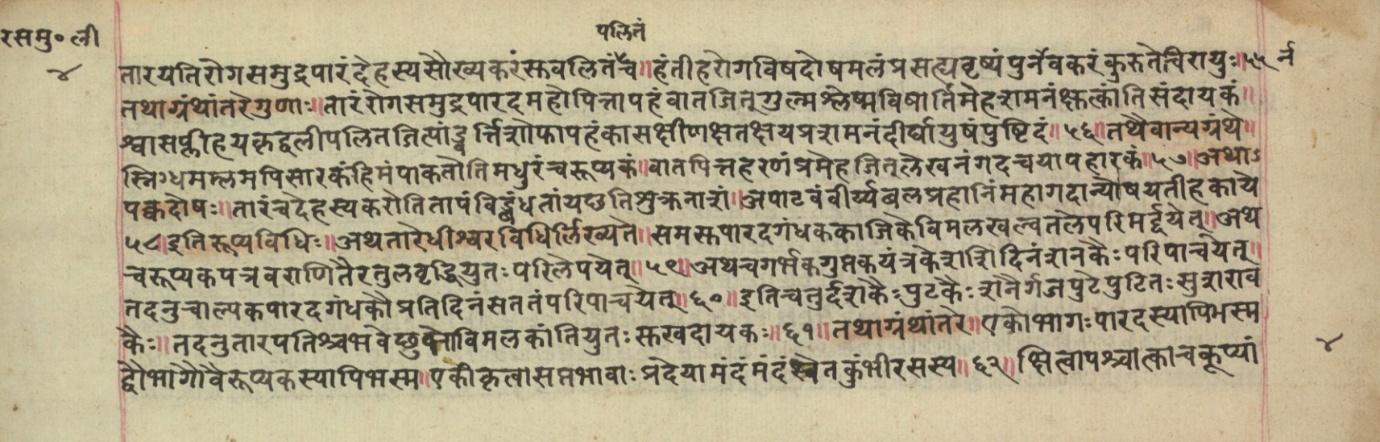 रसमु॰ ली
४
पलितं
तारयति रोगसमुद्रपारं देहस्य सौख्यकरं स्तवलितं च॥ हंतीह रोगविषदोषमलं प्रसह्य वृष्यं पुर्नवकरं कुरुते चिरायुः॥५५ र्न
तथा ग्रंथांतरे गुणाः॥ तारं रोगसमुद्रपारदमहो पित्तापहं वातजित् गुल्मश्लेष्मविषार्तिमेहशमनं क्षुत्कांतिसंदायकं॥
श्वासप्लीहयकृद्वलीपलितजित्पांड्वर्त्तिशोफापहं कासक्षीणक्षतक्षयप्रशमनं दीर्घायुषं पुष्टिदं॥ ५६॥ तथैवान्यग्रंथे॥
स्निग्धमम्लमपि सारकं हिमं पाकतोति मधुरं च रूप्यकं॥ वातपित्तहरणं प्रमेहजित् लेखनं गदचयापहारकं॥ ५७॥ अथाऽ
पक्वदोषः॥ तारं च देहस्य करोति तापं विड्बंधतां यछति शुक्रनाशं॥ अपाटवं वीर्य्यबलप्रहानिं महागदान्योषयतीह काये
५८॥ इति रूप्यविधिः॥ अथ तारेधीश्वरविधिर्लिख्यते॥ समस्तपारदगंधककाजिकैविमलखल्वतले परिमर्द्दयेत्॥ अथ
च रूप्यकपत्रवराणि तैरतुलवृद्धियुतः परिलेपयेत्॥ ५९॥ अथ च गर्भकगुप्तकयंत्रके शशिदिनं शनकैः परिपाचयेत्॥
तदनु चाल्पकपारदगंधकौ प्रतिदिनं सततं परिपाचयेत्॥ ६०॥ इति चतुर्दशकैः पुटकैः शनैर्गजपुटे पुटितः सुशराव
कैः॥ तदनु तारपतिश्च भवेछु विमलकांतियुतः स्तखदायकः॥ ६१॥ तथा ग्रंथांतरे॥ एको भागः पारदस्यापि भस्म
४
द्वौ भागौ वै रूप्यकस्यापि भस्म॥ एकीकृत्वा सप्तभावाः प्रदेया मंदं मंदं श्वेतकुंभीरसस्य॥ ६२॥ क्षित्वा पश्चात्काचकूप्यां